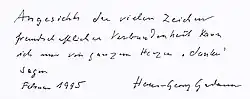 Angesichts der vielen Zeichen
freundschaftlicher Verbundenheit kann
ich nur von ganzem Herzen „danke“
sagen
Februar 1995 Hans-Georg Gadamer